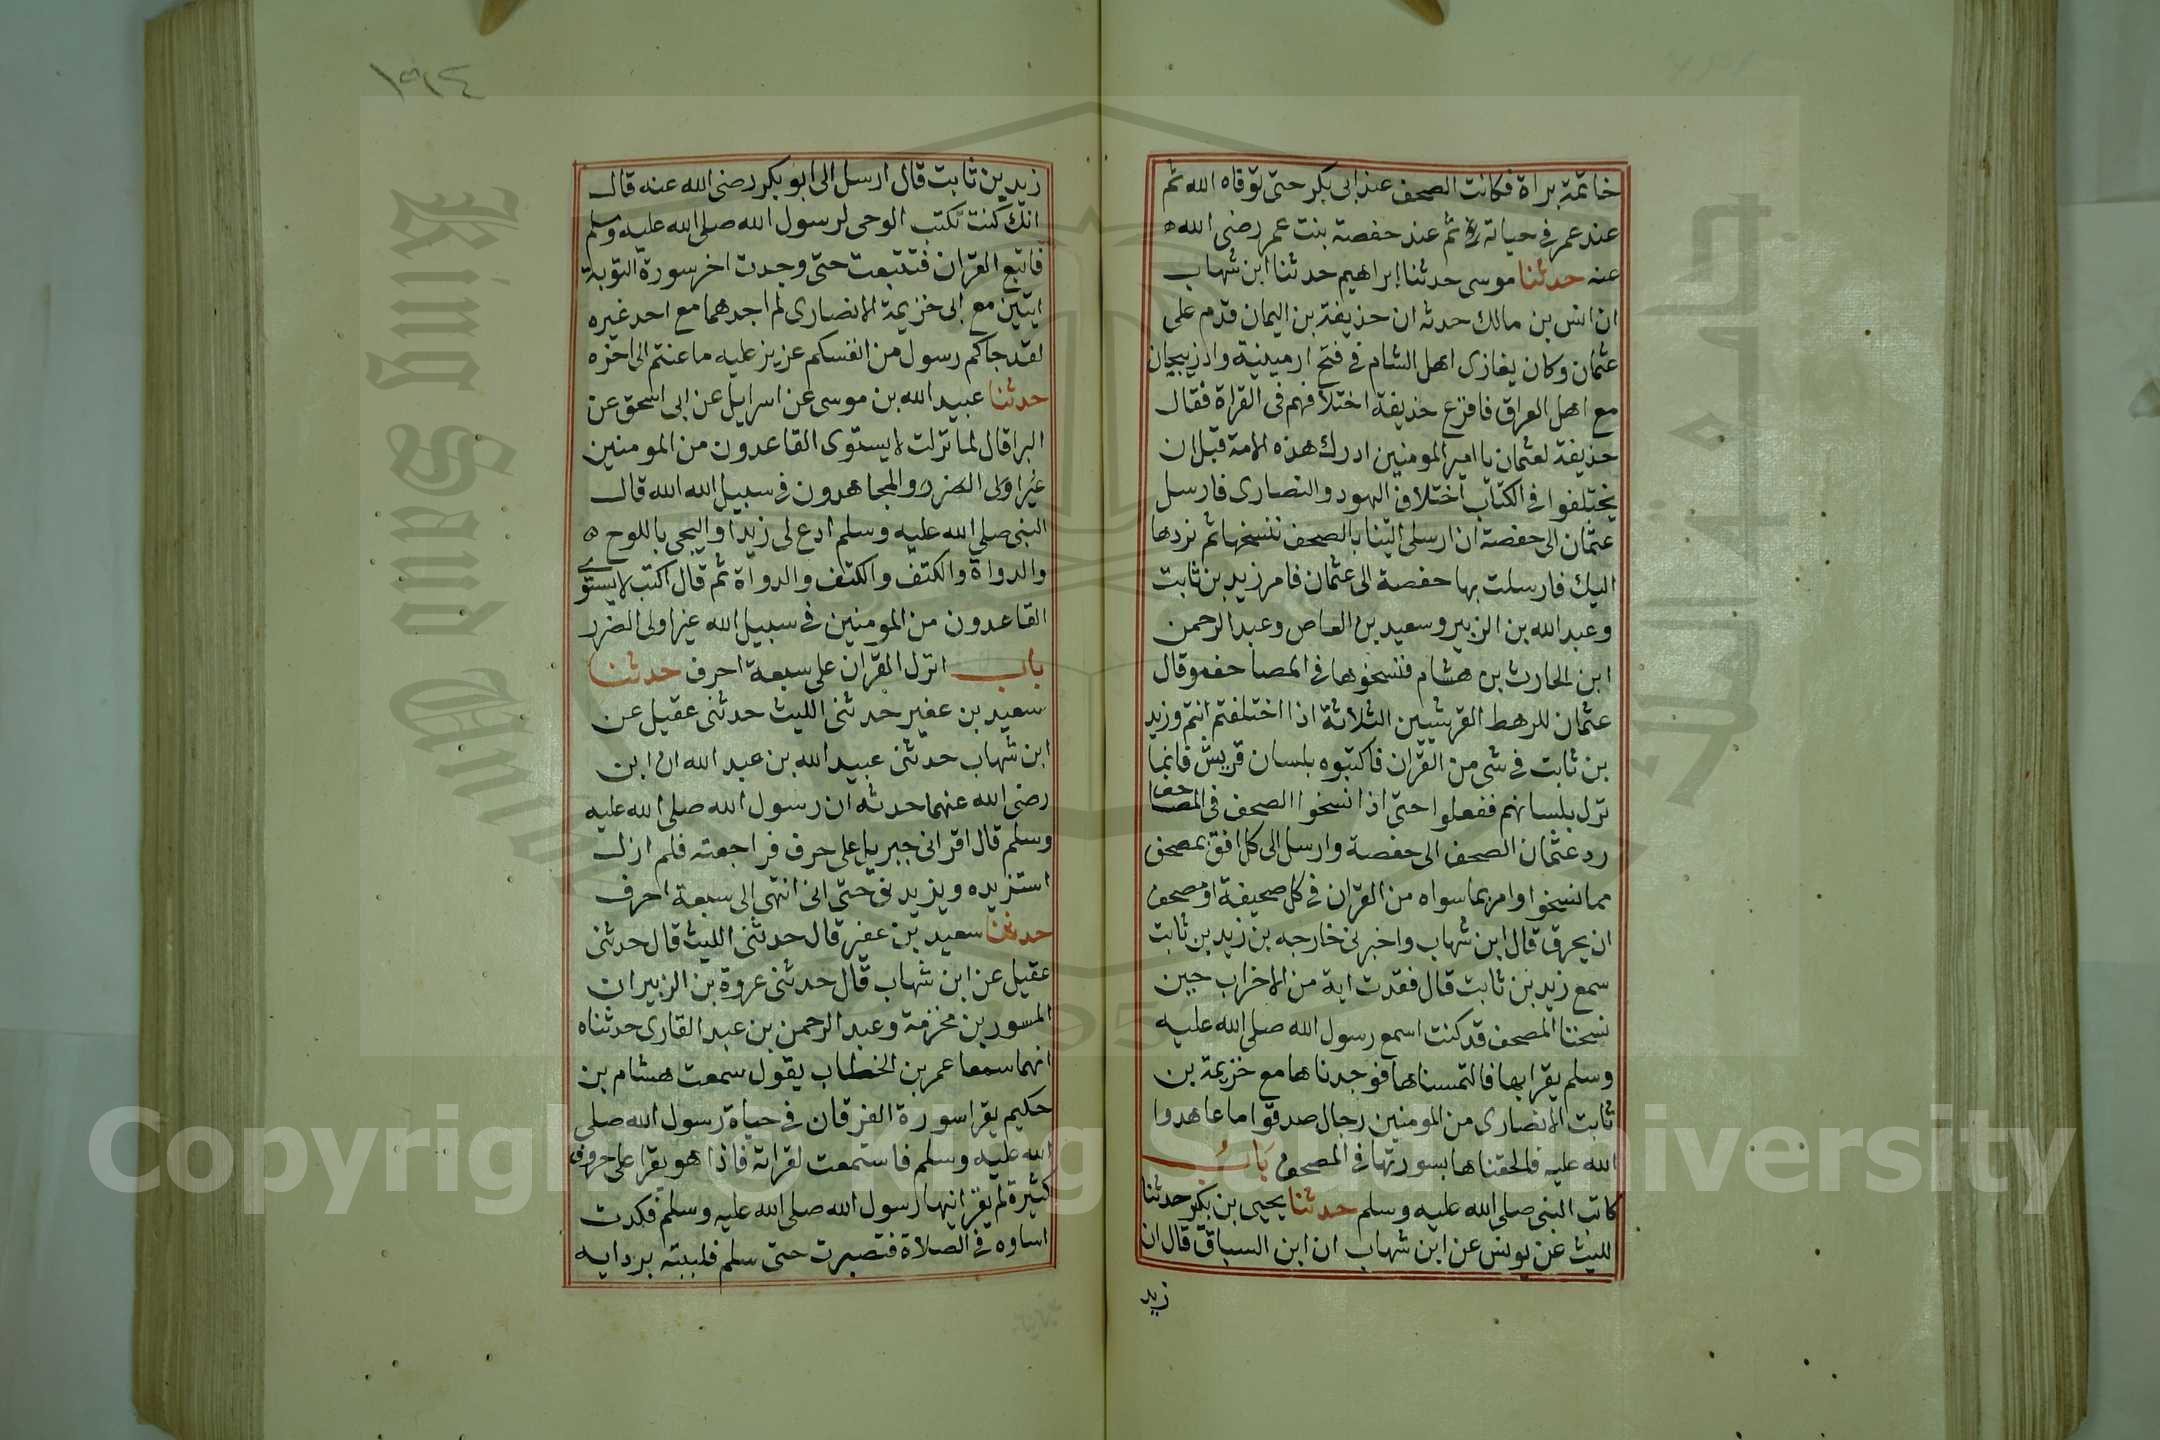 خاتمة براة فكانت الصحف عند ابى بكر حتى توفاه الله ثم
عند عمر فى حياته ثم عند حفصة بنت عمر رضى الله
عنه حدثنا موسى حدثنا ابراهيم حدثنا ابن شهاب
ان انس بن مالك حدثه ان حذيفة بن اليمان قدم على
عثمان وكان يغازى اهل الشام فى فتح ارمينية واذربيجان
مع اهل العراق فافزع حذيفة اختلافهم فى القراة فقال
حذيفة لعثمان يا امير المومنين ادرك هذه الامة قبل ان
يختلفوا فى الكتاب اختلاف اليهود والنصارى فارسل
عثمان الى حفصة ان ارسلى الينا بالصحف ننسخها ثم نردها
اليك فارسلت بها حفصة الى عثمان فامر زيد بن ثابت
وعبد الله بن الزبير وسعيد بن العاص وعبد الرحمن
ابن الحارث بن هشام فنسخوها فى المصاحف وقال
عثمان للرهط القرشيين الثلاثة اذا اختلفتم انتم وزيد
بن ثابت فى شى من القران فاكتبوه بلسان قريش فانما
نزل بلسانهم ففعلوا حتى اذا نسخوا الصحف فى المصاحف
رد عثمان الصحف الى حفصة وارسل الى كل افق بمصحف
مما نسخوا وامر بما سواه من القران فى كل صحيفة او مصحف
ان يحرق قال ابن شهاب واخبرنى خارجه بن زيد بن ثابت
سمع زيد بن ثابت قال فقدت اية من الاحزاب حين
نسخنا المصحف قد كنت اسمع رسول الله صلى الله عليه
وسلم يقرا بها فالتمسناها فوجدناها مع خزيمة بن
ثابت الانصارى من المومنين رجال صدقوا ما عاهدوا
الله عليه فالحقناها بسورتها فى المصحف باب
كاتب النبى صلى الله عليه وسلم حدثنا يحيى بن بكر حدثنا
لليث عن يونس عن ابن شهاب ان ابن السباق قال ان
زيد
١٩٤
زيد بن ثابت قال ارسل الى ابو بكر رضى الله عنه قال
انك كنت تكتب الوحى لرسول الله صلى الله عليه وسلم
فاتبع القران فتتبعت حتى وجدت اخر سورة التوبة
ايتين مع ابى خزيمة الانصارى لم اجدهما مع احد غيره
لقد جاكم رسول من انفسكم عزيز عليه ما عنتم الى اخره
حدثنا عبيد الله بن موسى عن اسرايل عن ابى اسحق عن
البرا قال لما نزلت لا يستوى القاعدون من المومنين
غير اولى الضرر والمجاهدون فى سبيل الله الله قال
النبى صلى الله عليه وسلم ادع لى زيدا واليجى باللوح
والدواة والكتف والكتف والدواة ثم قال اكتب لا يستوى
القاعدون من المومنين فى سبيل الله غير اولى الضرر
باب انزل القران على سبعة احرف حدثنا
سعيد بن عفير حدثنى الليث حدثنى عقيل عن
ابن شهاب حدثنى عبيد الله بن عبد الله ان ابن
رضى الله عنهما حدثه ان رسول الله صلى الله عليه
وسلم قال اقرانى جبريل على حرف فراجعته فلم ازل
استزيده ويزيدنى حتى انى انتهى الى سبعة احرف
حدثنا سعيد بن عفير قال حدثنى الليث قال حدثنى
عقيل عن ابن شهاب قال حدثنى عروة بن الزبير ان
المسور بن مخزمة وعبد الرحمن بن عبد القارى حدثناه
انهما سمعا عمر بن الخطاب يقول سمعت هشام بن
حكيم يقرا سورة الفرقان فى حياة رسول الله صلى
الله عليه وسلم فاستمعت لقراته فاذا هو يقرا على حروف
كثيرة لم يقرانيها رسول الله صلى الله عليه وسلم فكدت
اساوه فى الصلاة فتصبرت حتى سلم فلببته بردايه
Copyright © King Saud University